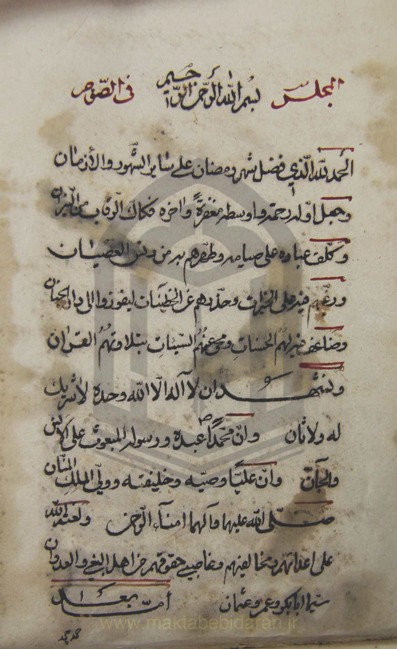 المجلس بسم الله الرحمن الرحيم فی الصوم
الحمد لله الذي فضل شهر رمضان علی سایر الشهور والازمان
وجعل اوله رحمة واوسطه مغفرة واخره فكاك الرقاب من النیران
وكلف عباده علی صیامه وطهرهم به من دنس العصیان
ورغبهم فیه علی الخیرات وحذرهم عن الخطیئات لیفوزوا الی دار الجنان
وضاعف فیه لهم الحسنات ومحی عنهم السیئات بتلاوتهم القران
ونشهد ان لا آله الا الله وحده لا شریك
له ولا ثان وان محمدا عبده ورسوله المبعوث علی الانس
والجان وان علیا وصیه وخلیفته وولی الملك المنان
صلی الله علیهما وآلهما امناء الرحمن ولعنة الله
علی اعدائهم ومخالفیهم وغاصبی حقوقهم من اهل البغي والعدوان
سیما ابابكر وعمر وعثمان اما بعد
www.maktabebidaran.ir